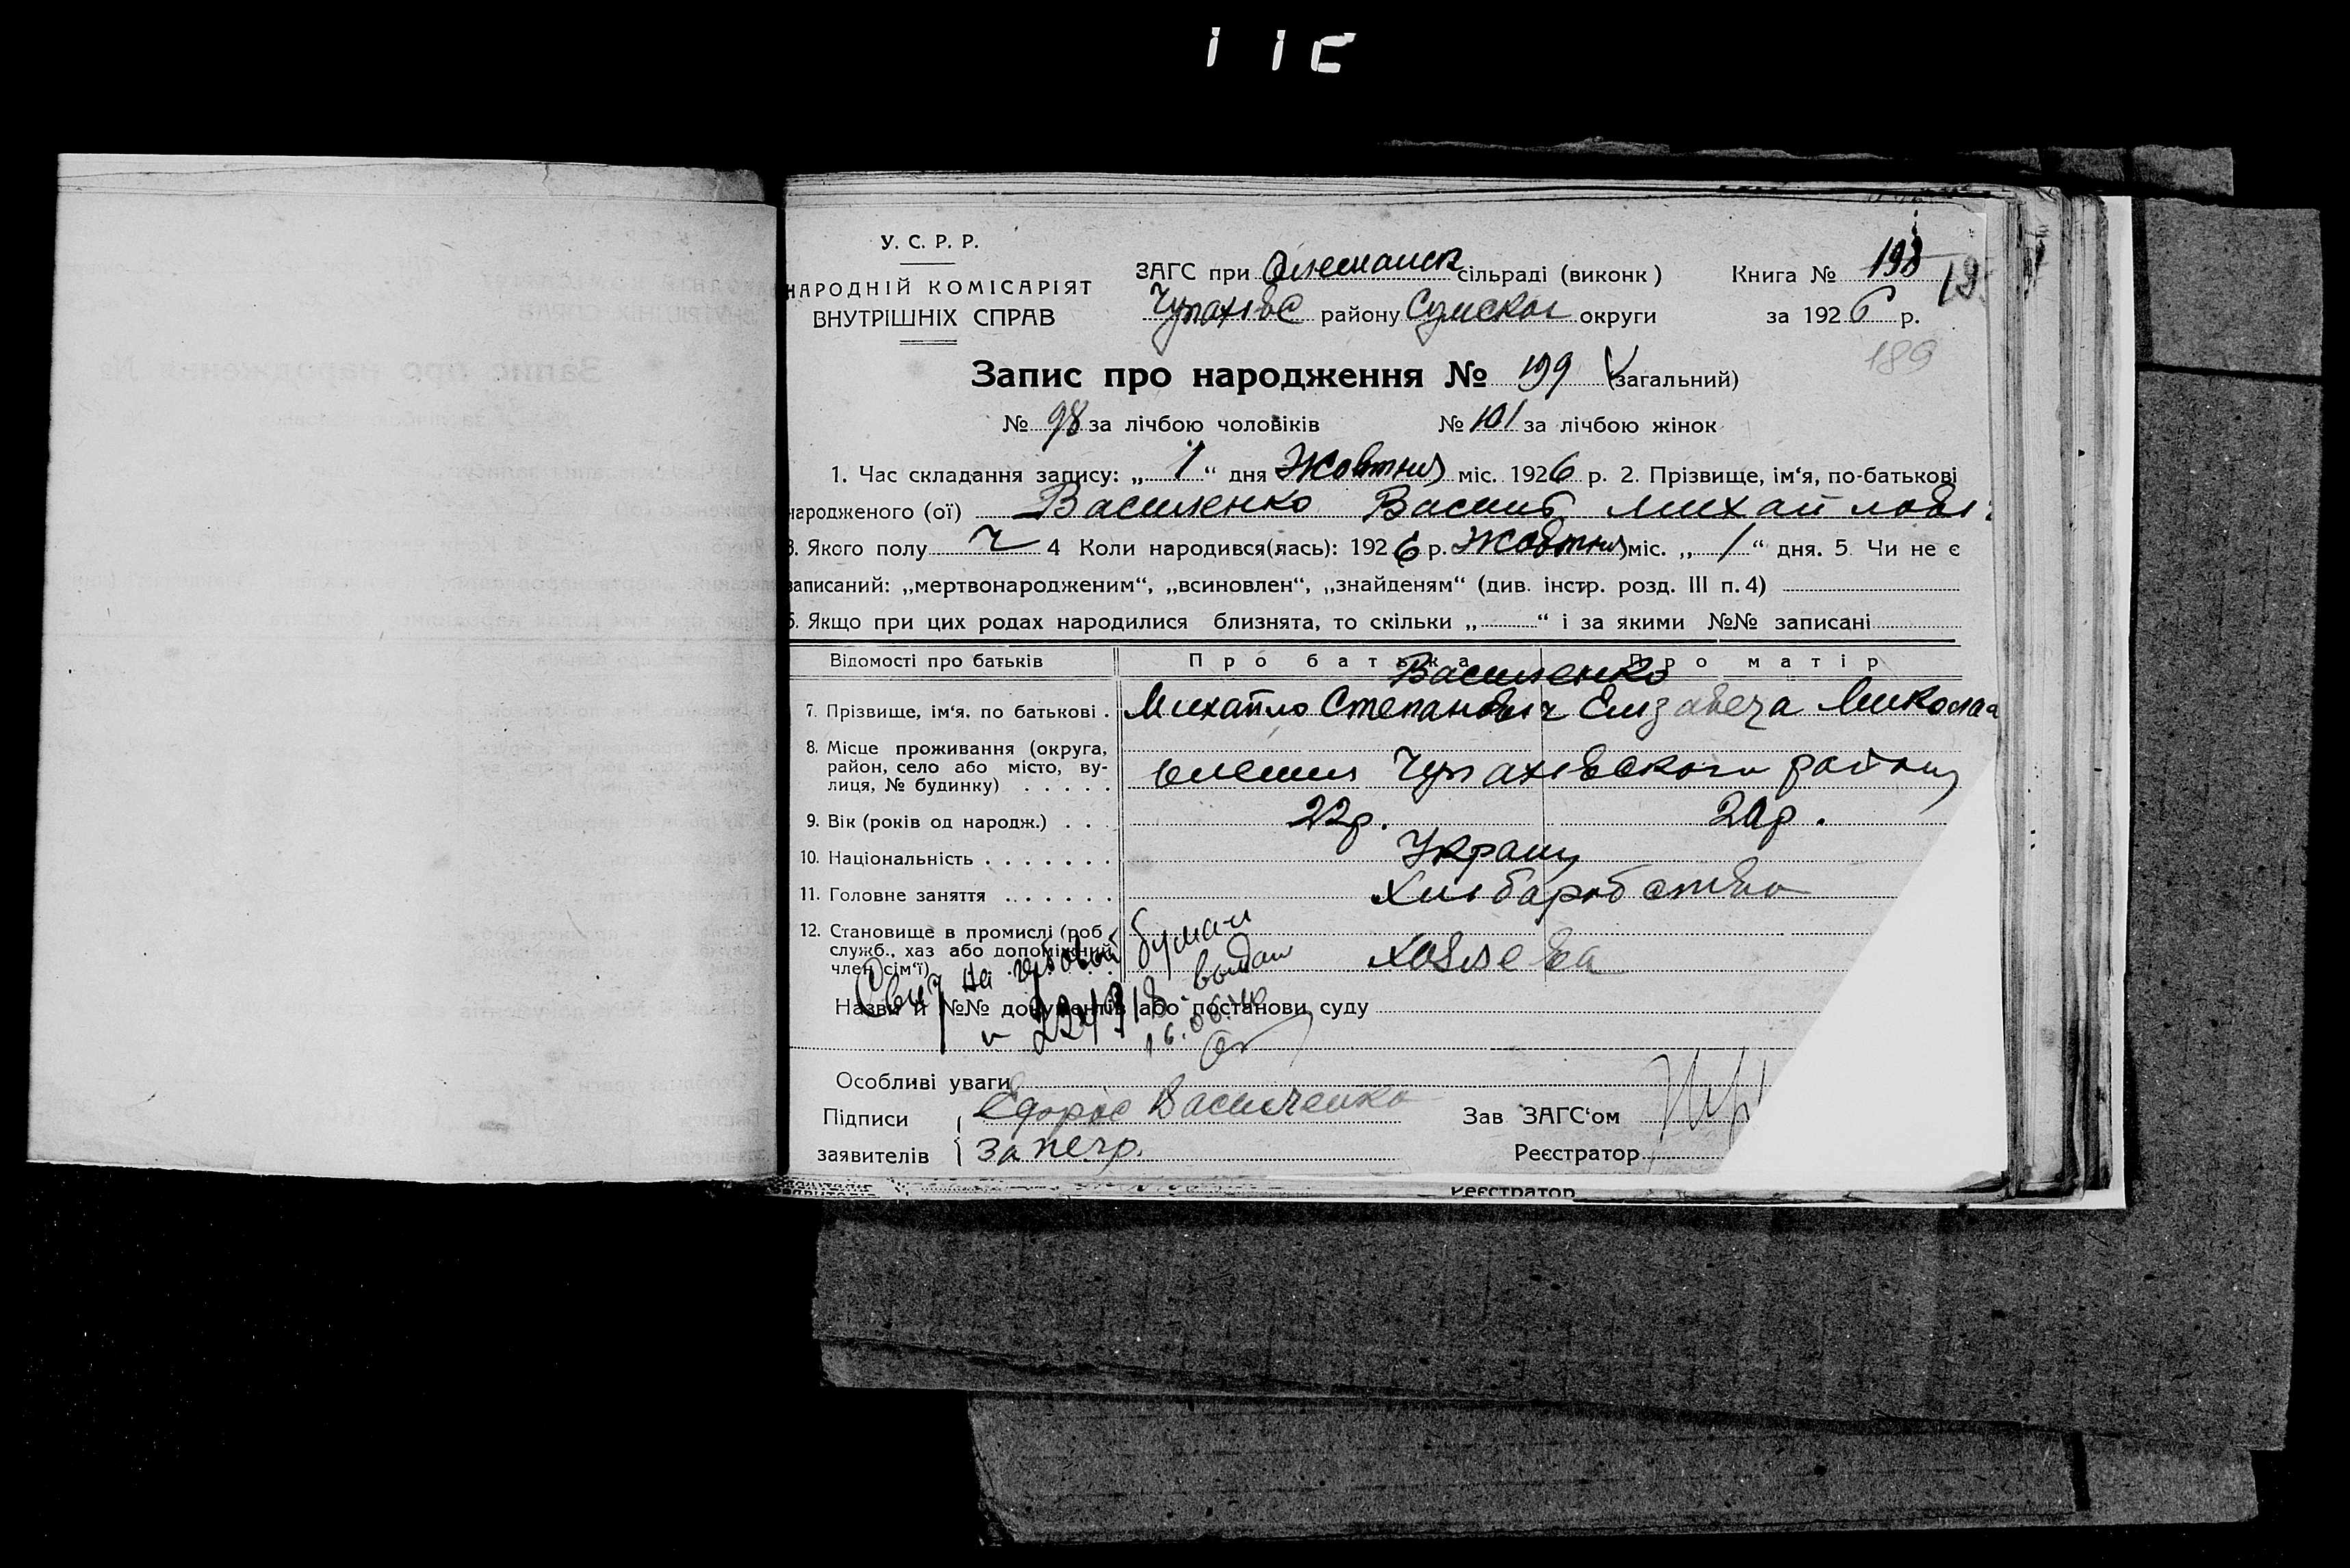 У. С. Р. Р.
НАРОДНІЙ КОМІСАРІЯТ
ВНУТРІШНІХ СПРАВ
ЗАГС при сільраді (виконк)
Чупахівс району Сумской округи
Книга № 198
за 1926 р.
189
Запис про народження № 199 (загальний)
№ 98 за лічбою чоловіків № 101 за лічбою жінок
1. Час складання запису: „ 1 “ дня Жовтня міс. 1926 р. 2. Прізвище, ім‘я, по-батькові
народженого (ої) Василенко Василь Михайлови
3. Якого полу Ч 4 Коли народився(лась): 1926 р. Жовтня міс. „ 1 “ дня. 5. Чи не є
записаний: „мертвонародженим“, „всиновлен“, „знайденям“ (див. інстр. розд. III п. 4)
6. Якщо при цих родах народилися близнята, то скільки „ “ і за якими №№ записані
Відомості про батьків Про батька Про матір
Василенко
7. Прізвище, ім‘я, по батькові . Михайло Степанович Елизавета Микола
8. Місце проживання (округа,
район, село або місто, ву-
лиця, № будинку) . . . . .
Чупахівского району
9. Вік (років од народж.) . . . 22р. 20р.
10. Національність . . . . . . . Украин
11. Головне заняття . . . . . . Хлибаробство
12. Становище в промислі (роб
служб., хаз або допоміжний
член сім‘ї)
Назви й №№ документів або постанови суду
Свид на гербовой бумаги
выдан
16.06.
Особливі уваги
Підписи Василенко
заявителів За негр.
Зав ЗАГС‘ом
Реєстратор
Реєстратор